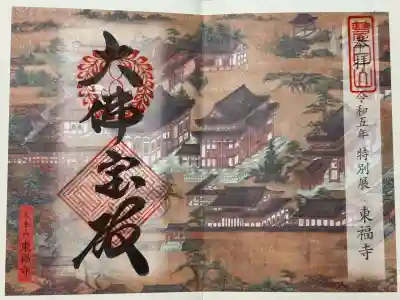 慧日山
令和五年 特別展 東福寺
大佛宝殿
大本山
東福寺